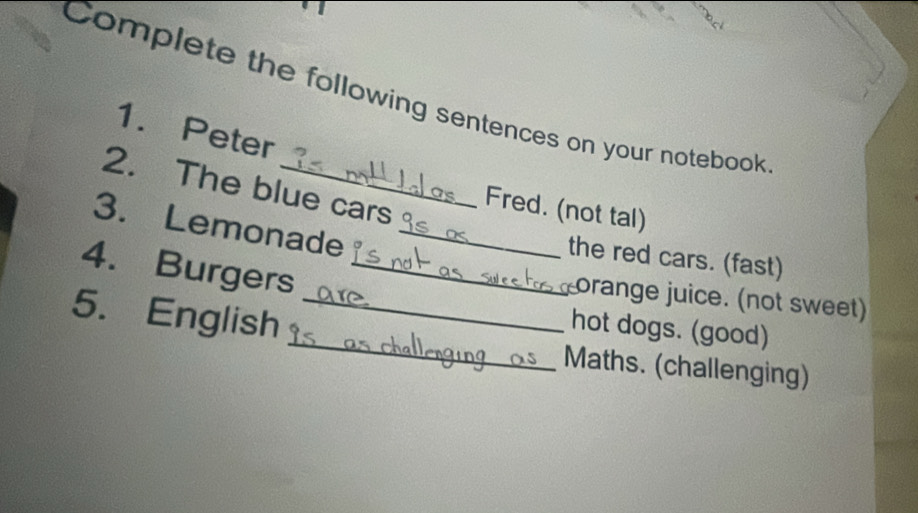 Complete the following sentences on your notebook.
1. Peter is as Fred. (not tal)
2. The blue cars is as the red cars. (fast)
3. Lemonade is not as sweet as orange juice. (not sweet)
4. Burgers are hot dogs. (good)
5. English is as challenging as Maths. (challenging)